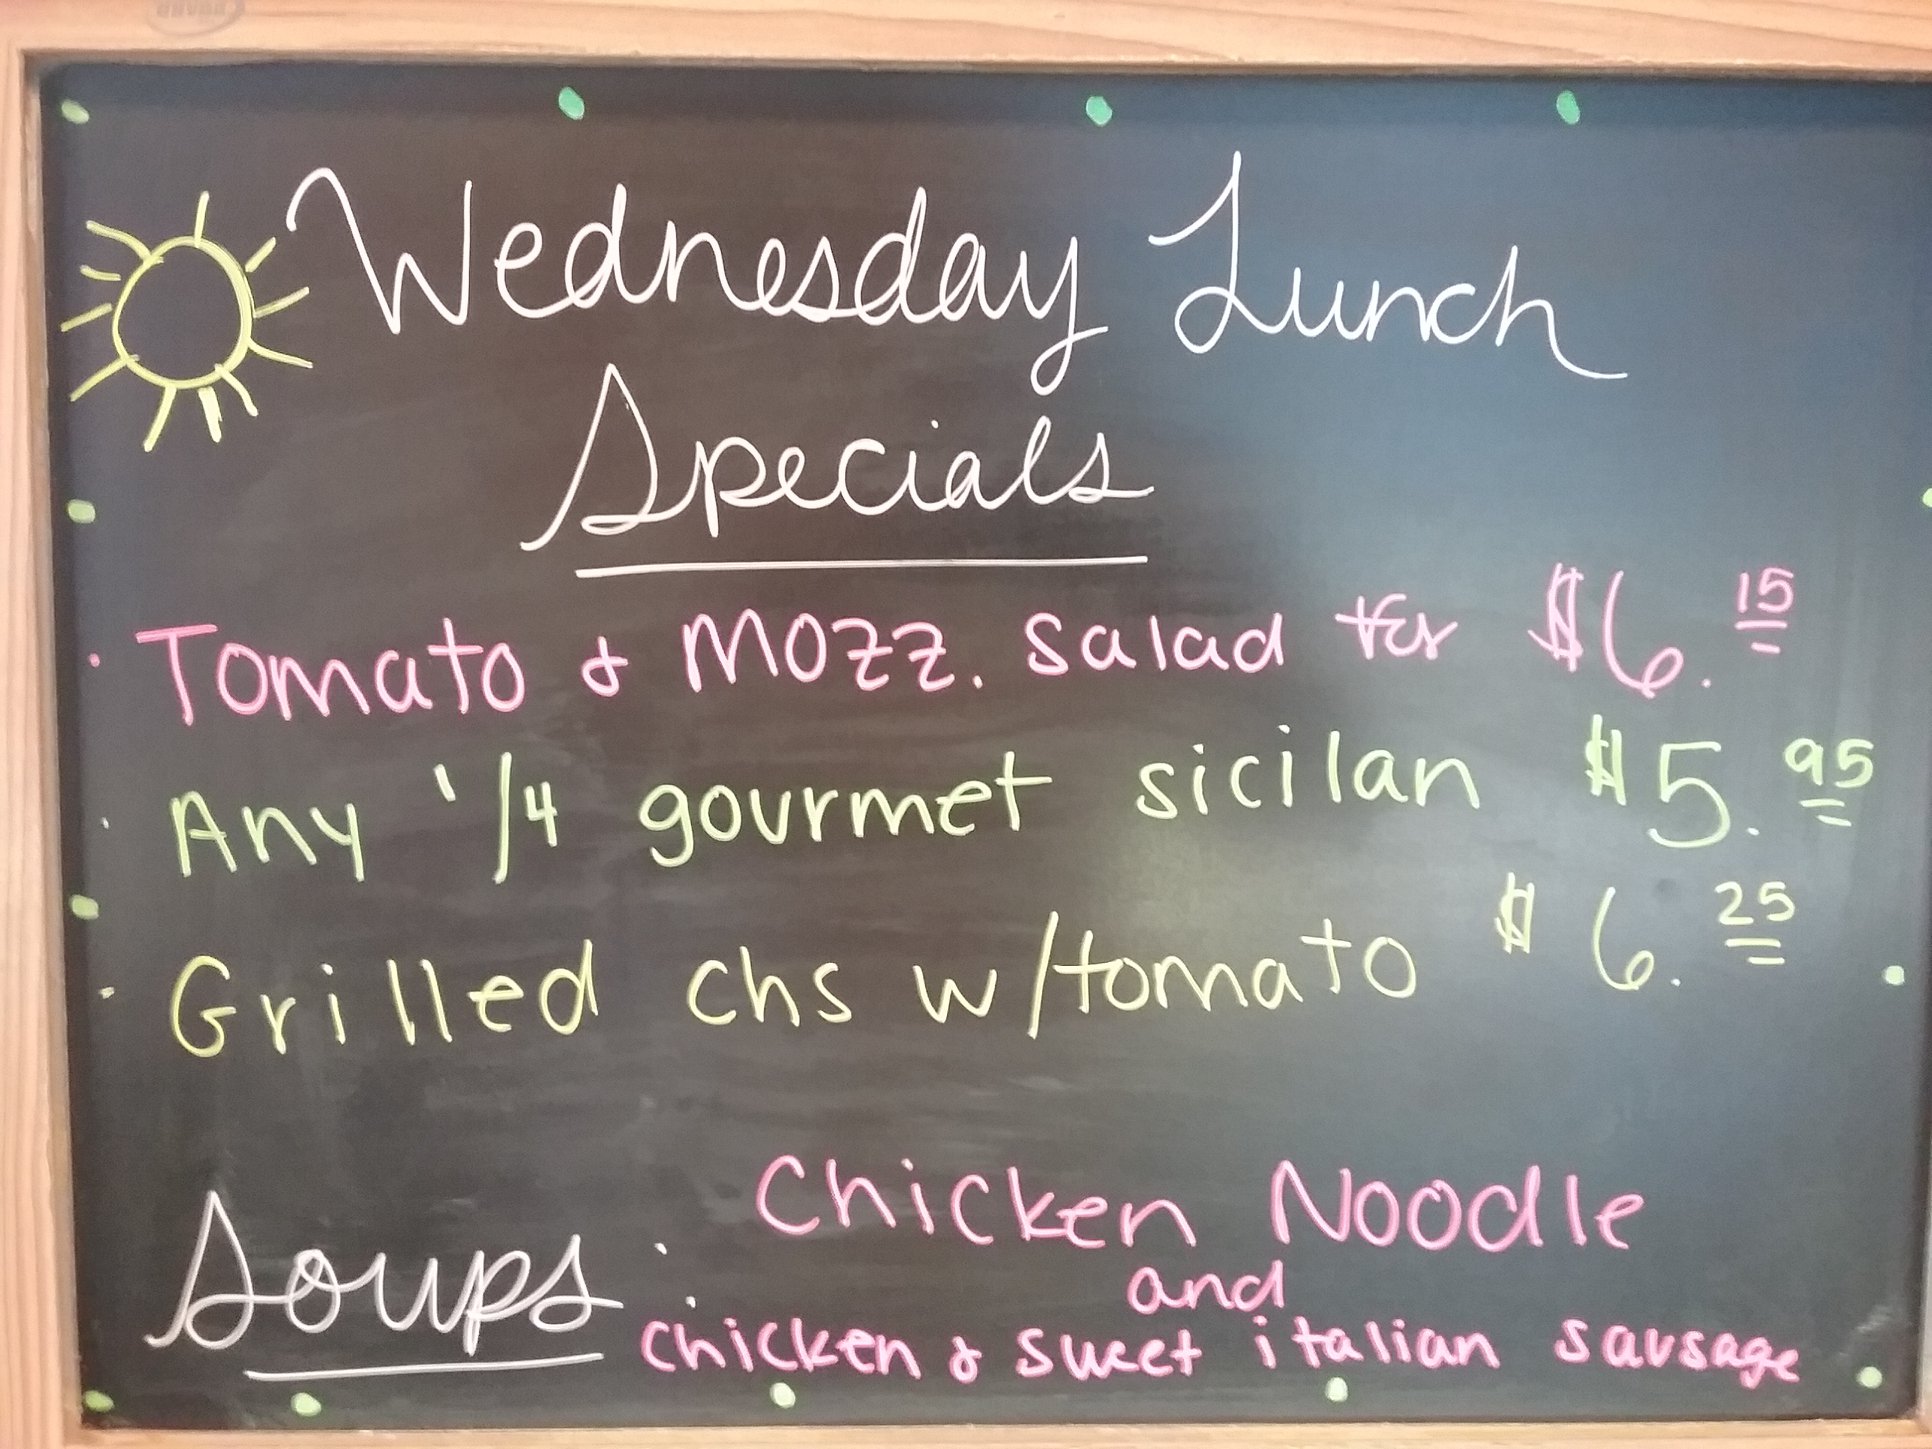 Wednesday Lunch
Specials
· Tomato & Mozz. Salad for $6.15
· Any 1/4 gourmet sicilan $5.95
· Grilled chs w/tomato $6.25
Soups: Chicken Noodle
and
chicken & sweet italian sausage